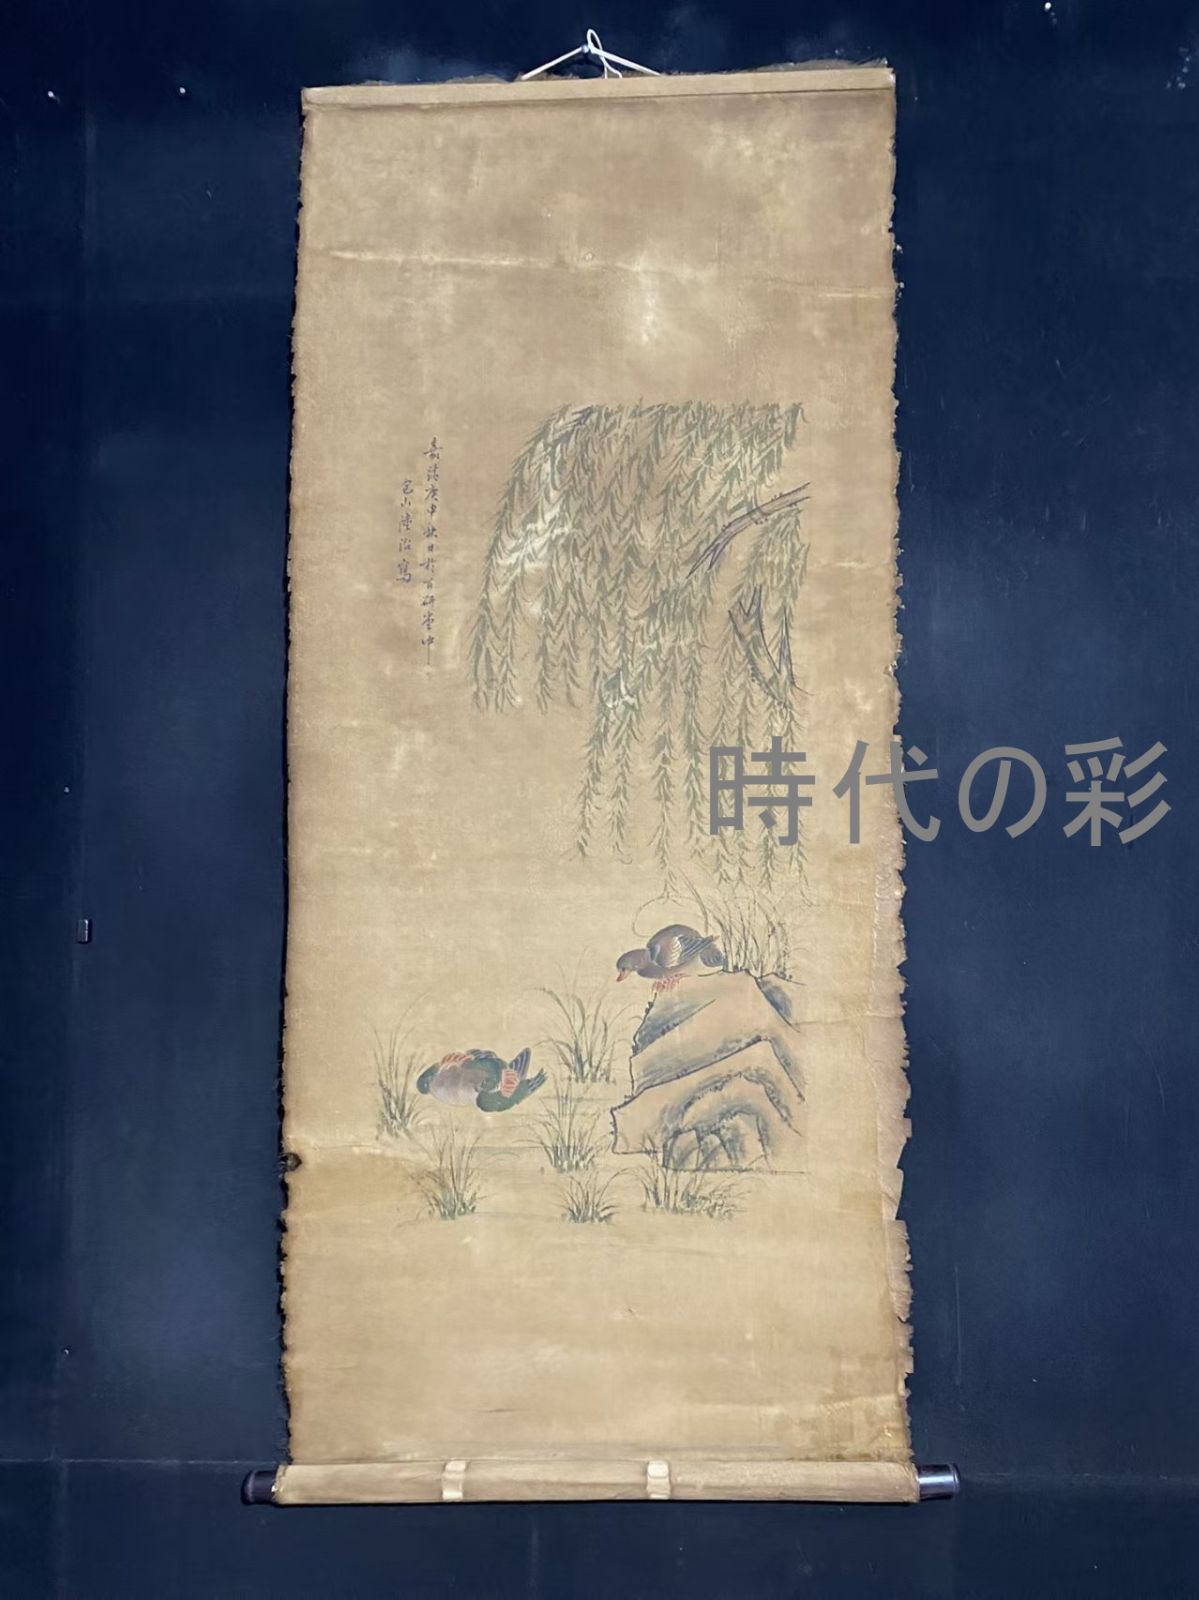 嘉靖庚申秋日於百研堂中
包山陸治寫
時代の彩